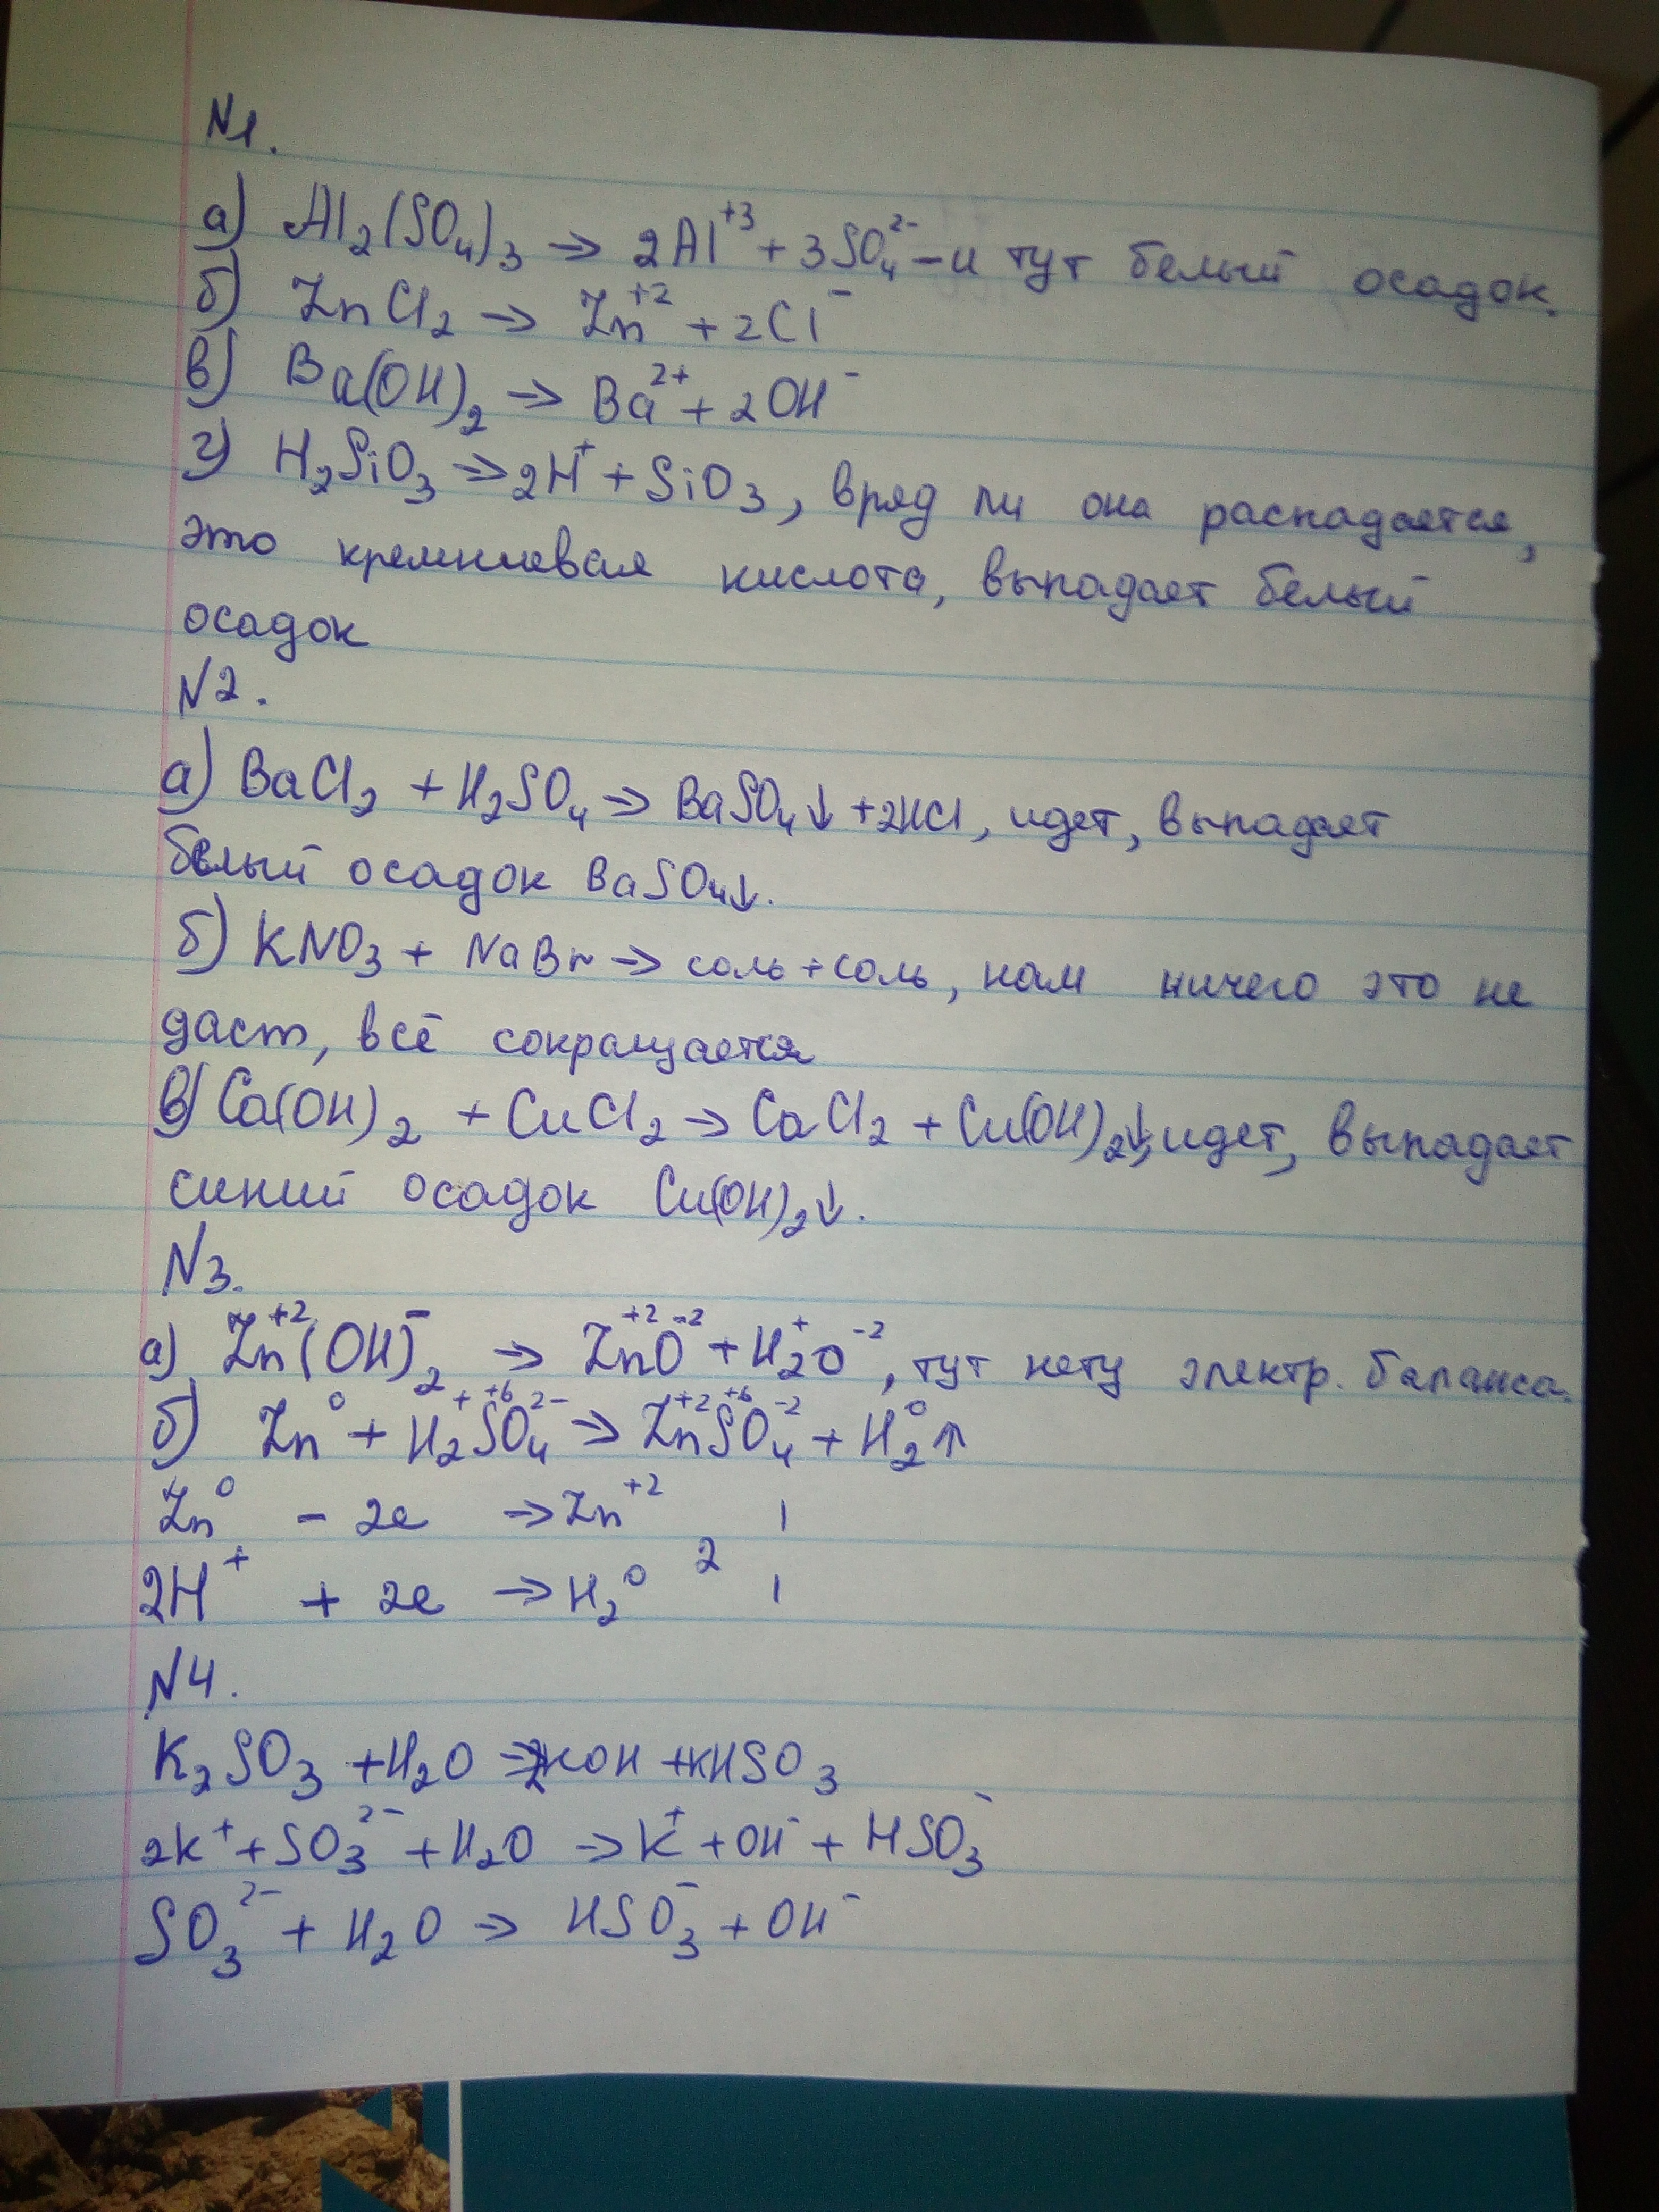 N1.
а) Al₂(SO₄)₃ → 2Al⁺³ + 3SO₄²⁻ - и тут белый осадок.
б) ZnCl₂ → Zn⁺² + 2Cl⁻
в) Ba(OH)₂ → Ba²⁺ + 2OH⁻
г) H₂SiO₃ → 2H⁺ + SiO₃, вряд ли она распадается,
это кремниевая кислота, выпадает белый
осадок
N2.
а) BaCl₂ + H₂SO₄ → BaSO₄↓ + 2HCl, идет, выпадает
белый осадок BaSO₄↓.
б) KNO₃ + NaBr → соль + соль, нам ничего это не
даст, всё сокращается
в) Ca(OH)₂ + CuCl₂ → CaCl₂ + Cu(OH)₂↓, идет, выпадает
синий осадок Cu(OH)₂↓.
N3.
а) Zn⁺²(OH)⁻₂ → Zn⁺²O⁻² + H₂⁺O⁻², тут нету электр. баланса.
б) Zn⁰ + H₂⁺S⁺⁶O₄²⁻ → Zn⁺²S⁺⁶O₄⁻² + H₂⁰↑
Zn⁰ - 2e → Zn⁺² 1
2H⁺ + 2e → H₂⁰ 2 1
N4.
K₂SO₃ + H₂O → KOH + KHSO₃
2K⁺ + SO₃²⁻ + H₂O → K⁺ + OH⁻ + HSO₃⁻
SO₃²⁻ + H₂O → HSO₃⁻ + OH⁻